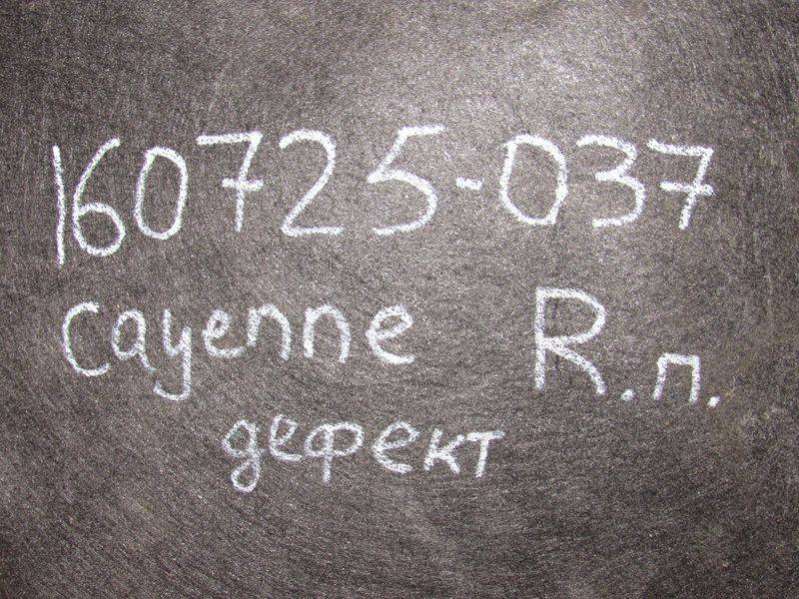 160725-037
Cayenne R.п.
дефект